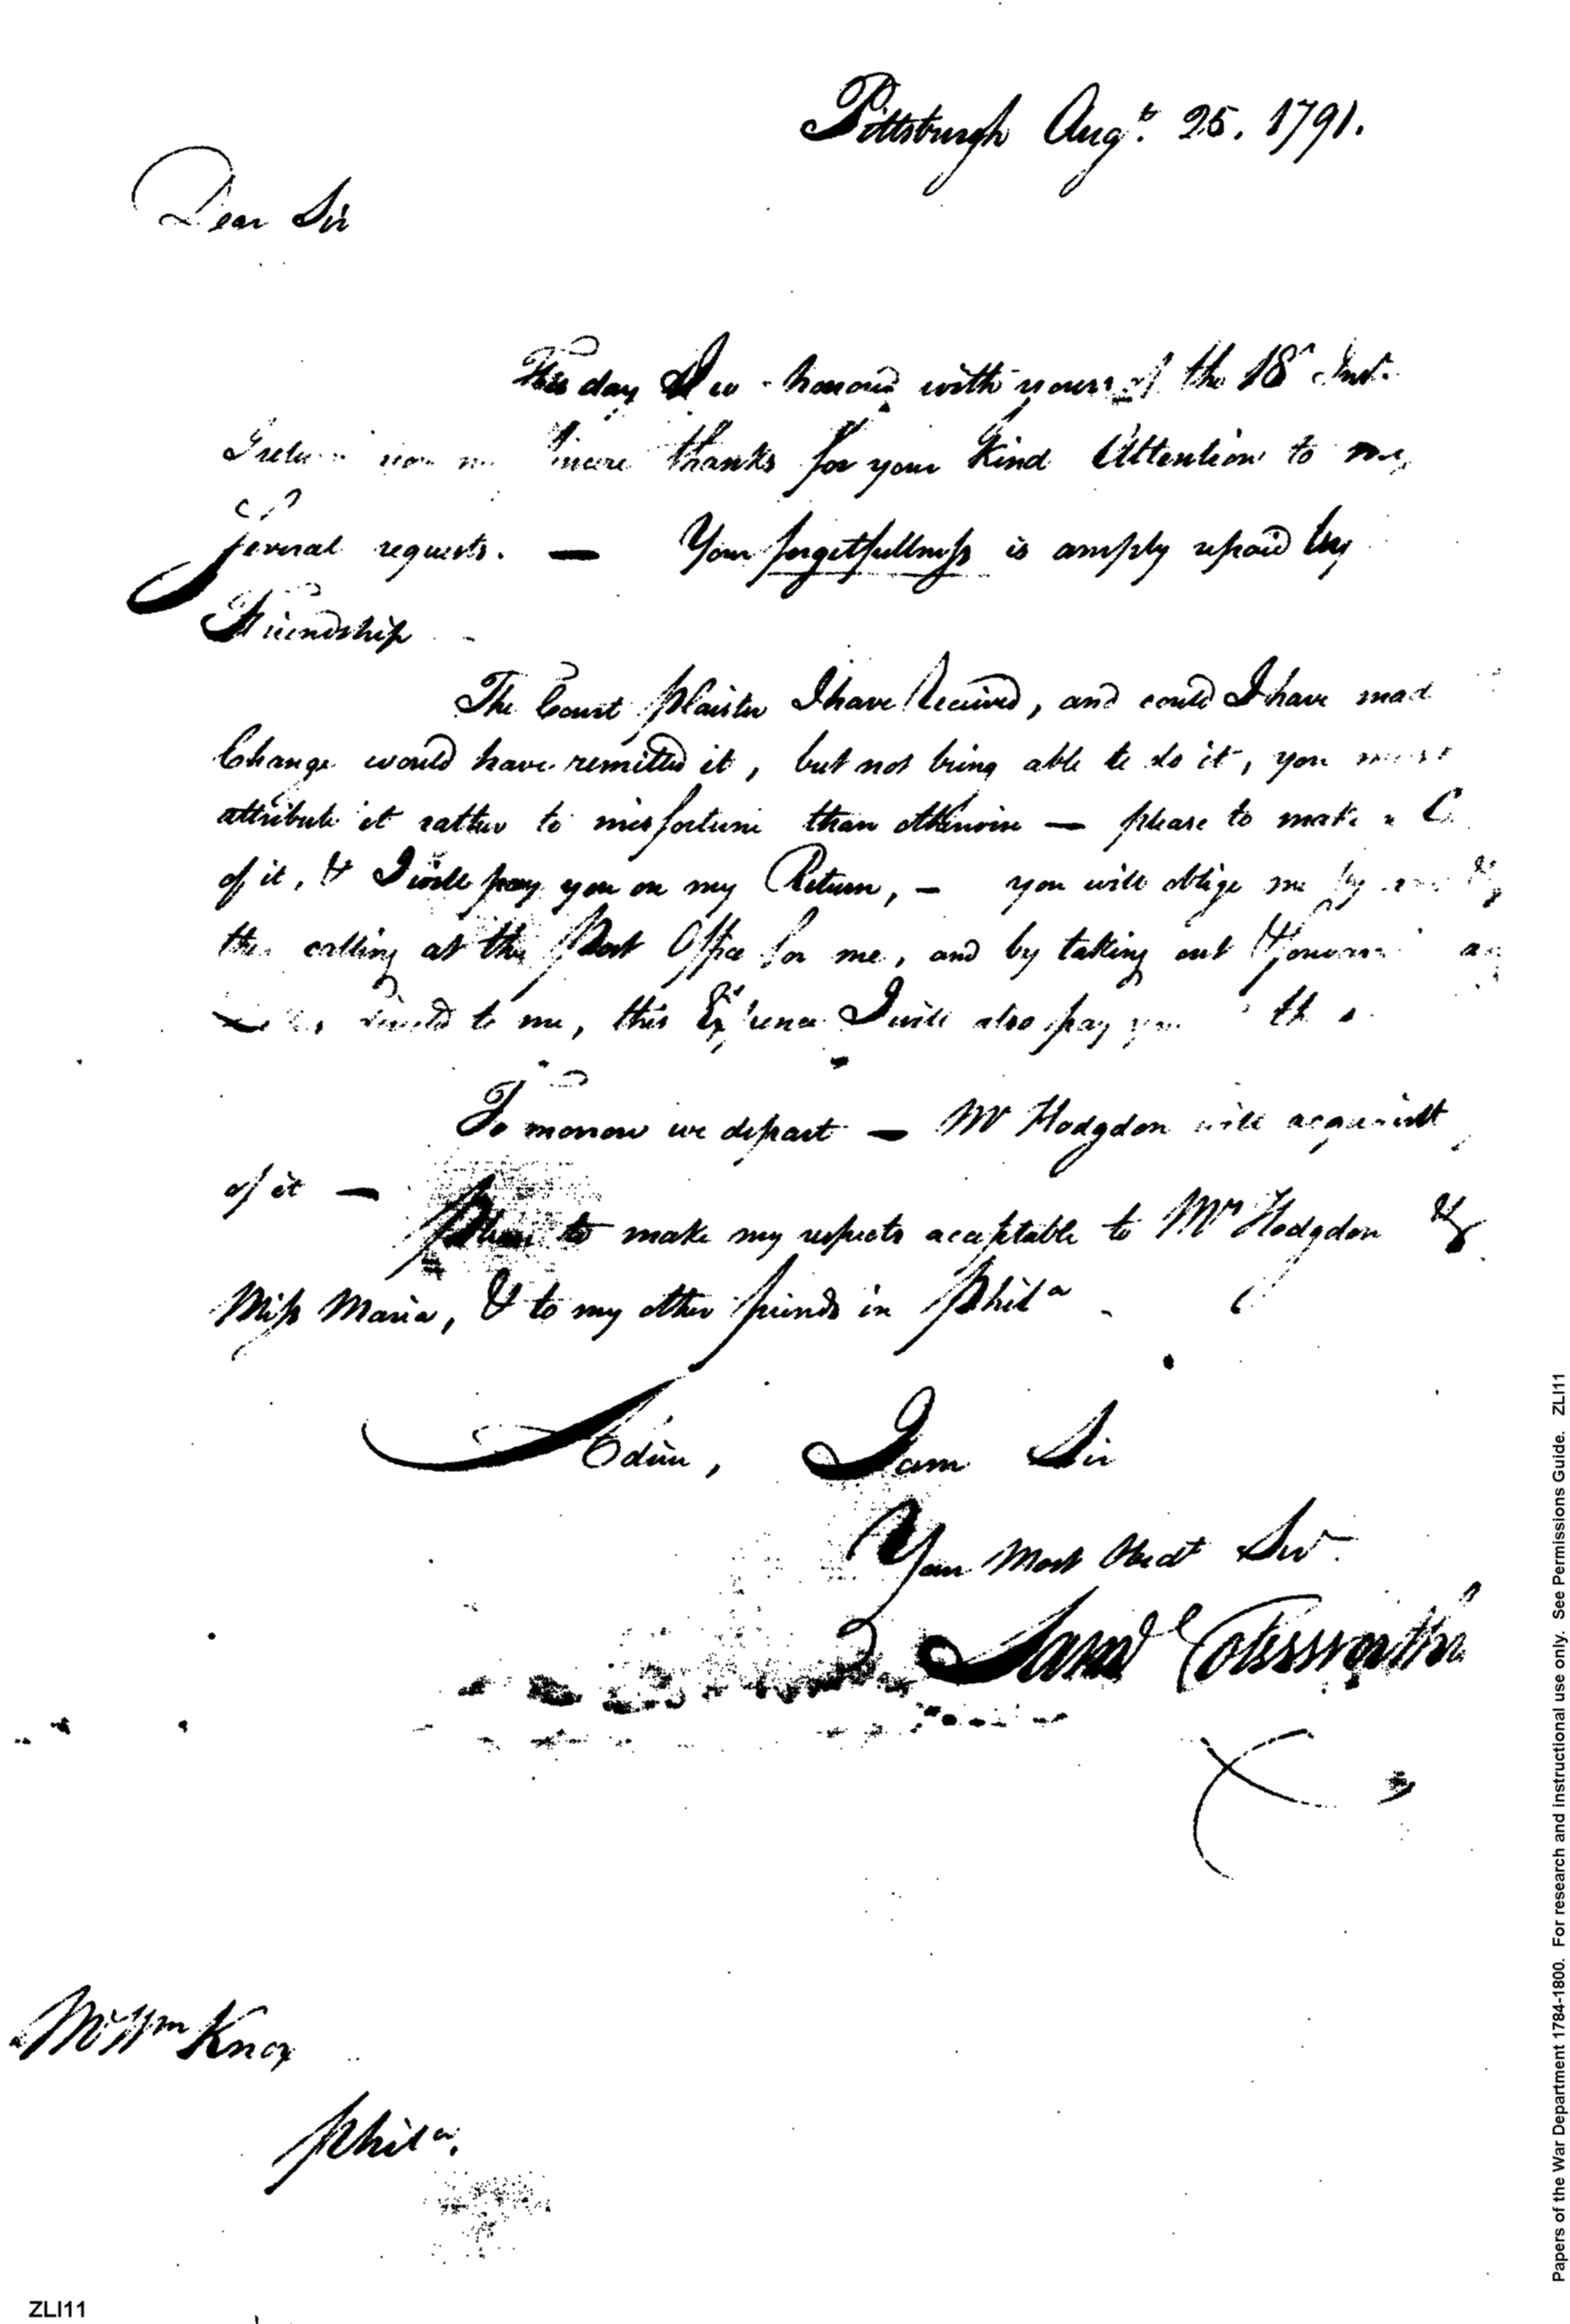 Pittsburgh Augt. 25. 1791.
Dear Sir
This day I honored with yours of the 18 Inst.
thanks for your kind Attention to my
several requests. — Your forgetfullness is amply repaid by
Friendship
The Court plaister I have Received, and could I have mad
Change would have remitted it, but not being able to do it, you must
attribute it rather to misfortune than otherwise — please to make a C
of it, & I will pay you on my Return, — you will oblige me by
calling at the Post Office for me, and by taking out
to me, this Expence I will also pay
To morrow we depart — Mr Hodgdon will acquaint
of it —
Please to make my respects acceptable to Mrs Hodgdon &
Miss Maria, & to my other friends in Phila
Adieu, I am Sir
Your Most Obedt Servt
Saml Cotesworth
Mr Wm Knox
Phila.
ZLI11
Papers of the War Department 1784-1800. For research and instructional use only. See Permissions Guide. ZLI11